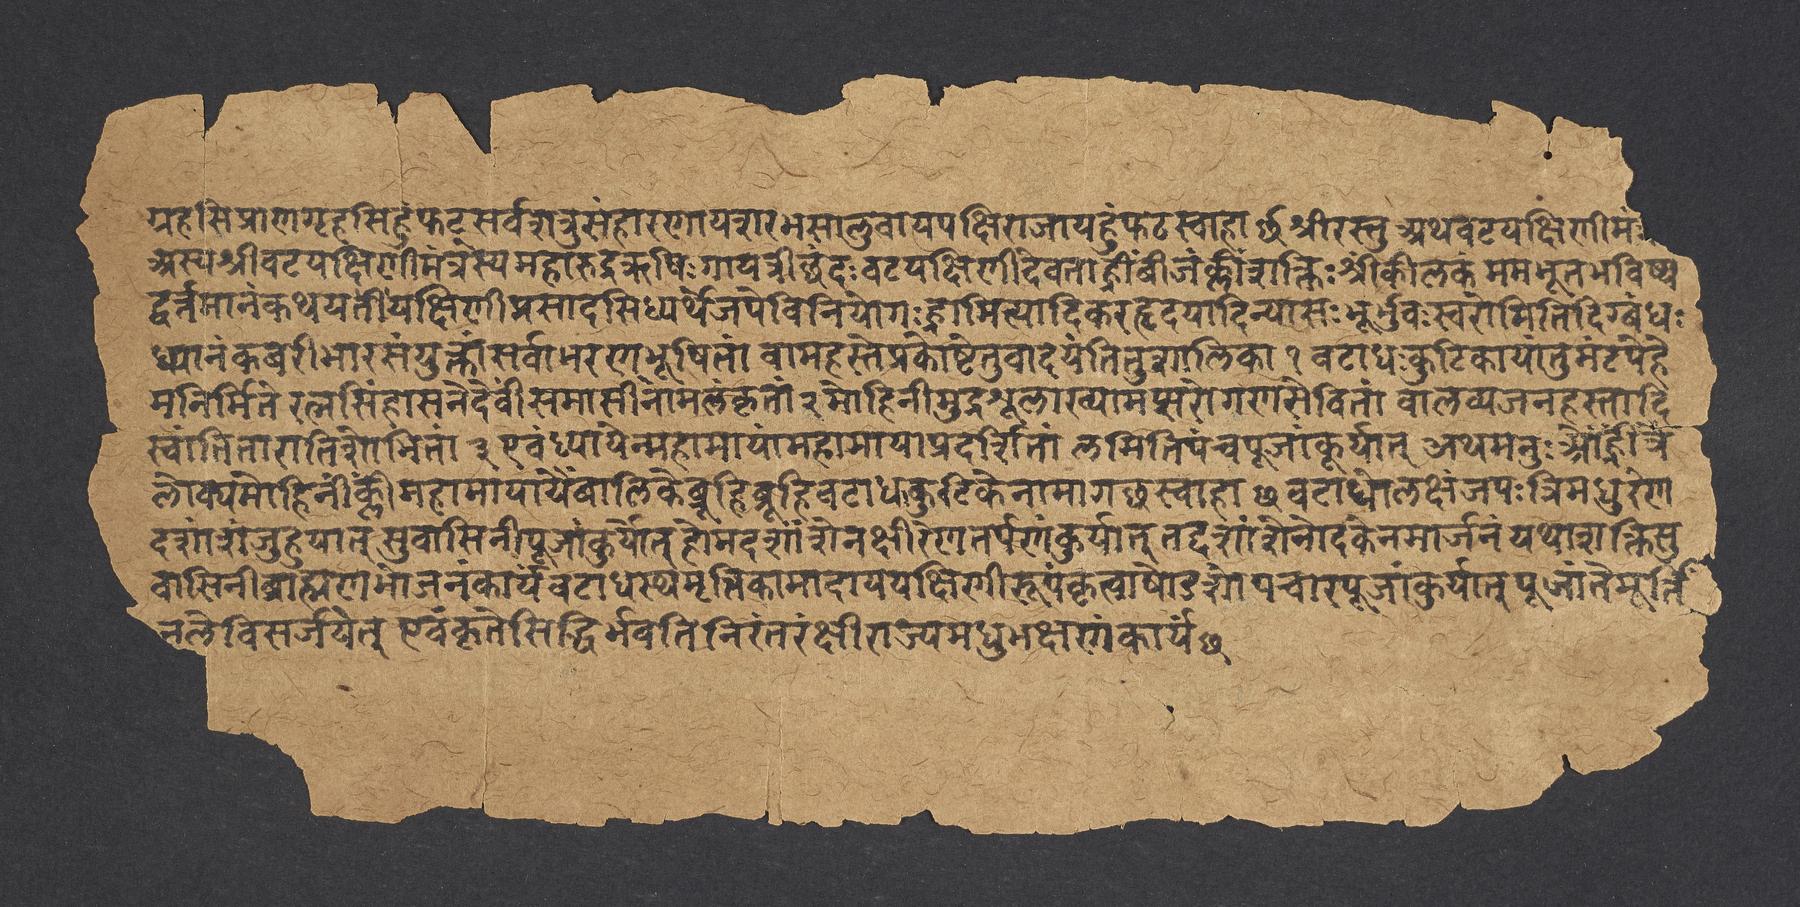 ग्रहसिप्राणगृहसिहुंफट्सर्वशत्रुसंहारणायशरभसालुवायपक्षिराजायहुंफटस्वाहा र्छ श्रीरस्तु अथवटयक्षिणीमं
अस्यश्रीवटयक्षिणीमंत्रस्य महारुद्रऋषिः गायत्रीछंदः वटयक्षिणीदेवता ह्रींबीजं क्लींशक्तिः श्रींकीलकं ममभूतभविष्य
द्वर्तमानंकथयतीयक्षिणीप्रसादसिध्यर्थेजपेविनियोगः ह्रामित्यादिकरहृदयादिन्यासः भूर्भुवःस्वरोमितिदिग्बंधः
ध्यानं कबरीभारसंयुक्तां सर्वाभरणभूषितां वामहस्तेप्रकोष्टेतुवादयंतितुशालिका १ वटाधःकुटिकायांतुमंटपेहे
मनिर्मिते रत्नसिंहासनेदेवींसमासीनामलंकृतां २ मोहिनीमुद्रशूलाख्यामप्सरोगणसेवितां वालव्यजनहस्तादि
स्वांतितारातिशोभितां ३ एवंध्यायेन्महामायांमहामायाप्रदर्शितां लमितिपंचपूजांकूर्यात् अथमनुः ओंह्रींत्रै
लोक्यमोहिनींक्लीं महामायायैबालिकेब्रूहिब्रूहिवटाधःकुटिकेनामागछस्वाहा छ वटाधोलक्षंजपः त्रिमधुरेण
दशांशंजुहुयात् सुवासिनीपूजांकुर्यात् होमदशांशेनक्षीरेणतर्पणंकुर्यात् तद्दशांशेनोदकेनमार्जनं यथाशक्तिसु
वासिनीब्राह्मणभोजनंकार्यं वटाधस्थमृत्तिकामादाययक्षिणीरूपंकृत्वाषोडशोपचारपूजांकुर्यात् पूजांतेमूर्तिं
जलेविसर्जयेत् एवंकृतेसिद्धिर्भवति निरंतरंक्षीराज्यमधुभक्षणंकार्यं छ